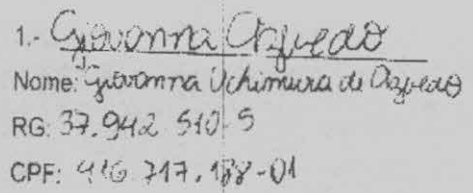 1.- Giovanna Azevedo
Nome: Giovanna Uchimura de Azevedo
RG: 37.942 510-5
CPF: 416 717.188-01